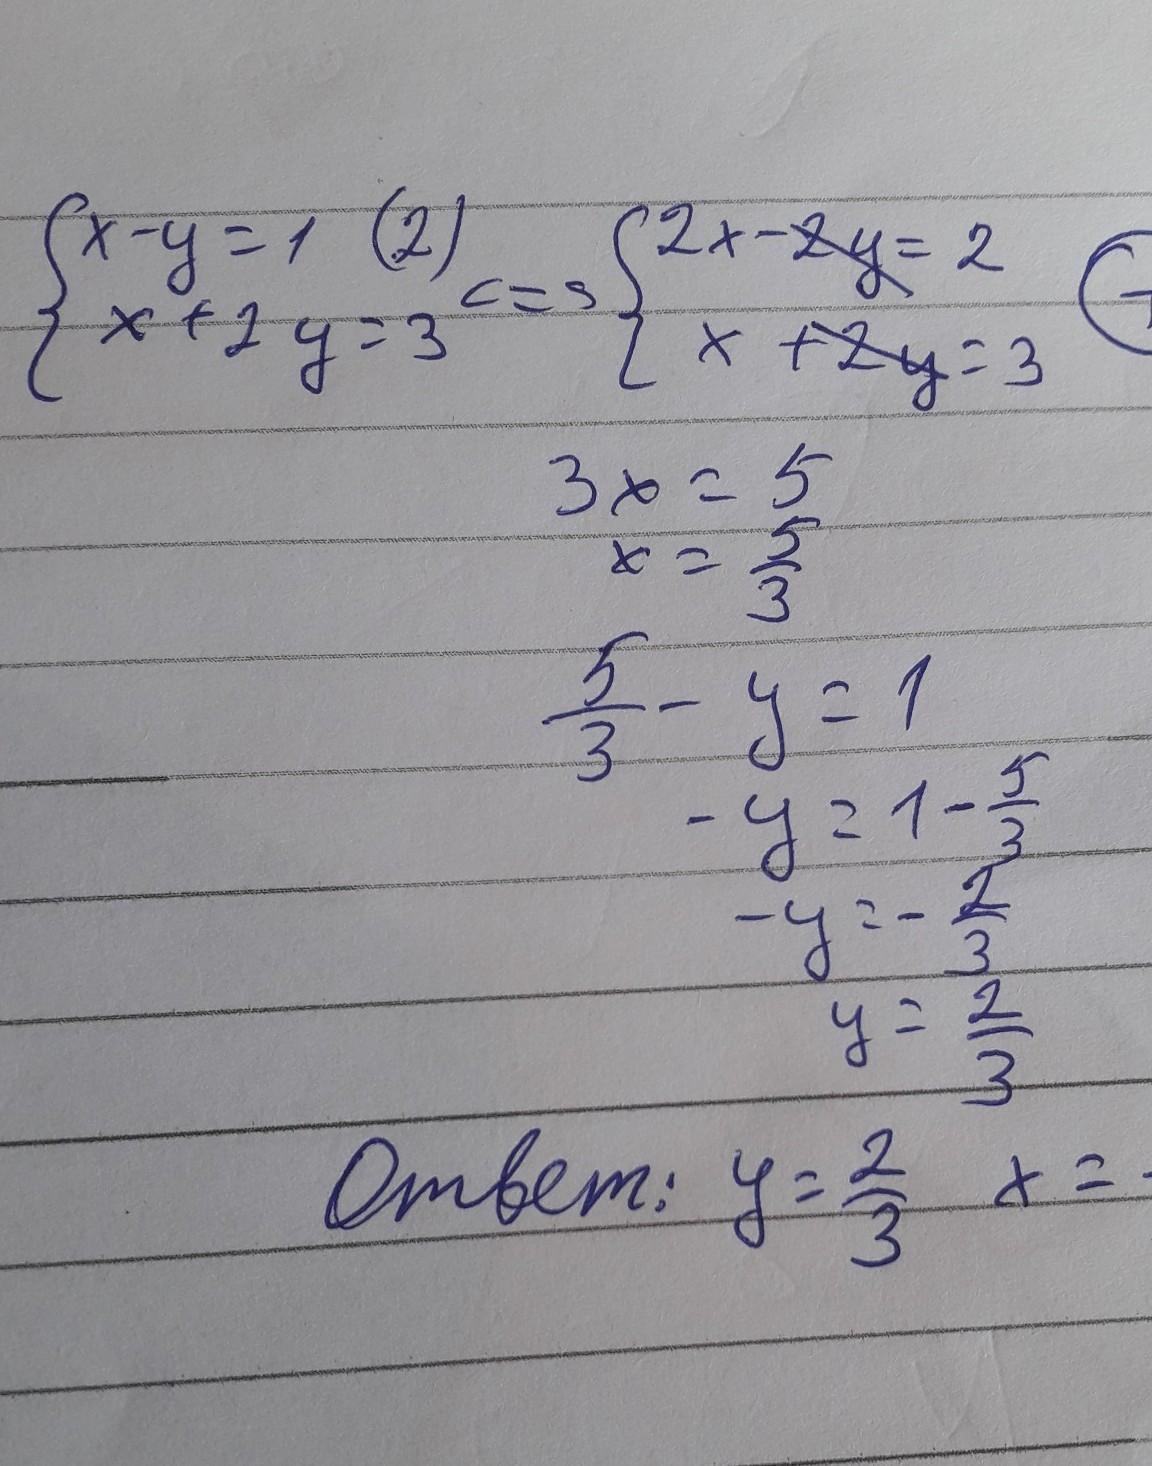 {x-y=1 (2) <=> {2x-2y=2
{x+2y=3 {x+2y=3
3x=5
x=5/3
5/3-y=1
-y=1-5/3
-y=-2/3
y=2/3
Ответ: y=2/3 x=